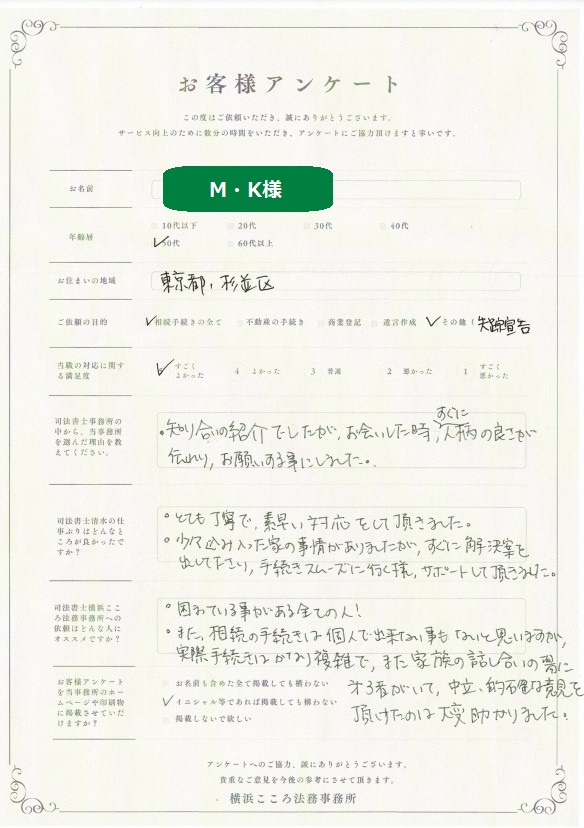 お客様アンケート
この度はご依頼いただき、誠にありがとうございます。
サービス向上のために数分の時間をいただき、アンケートにご協力頂けますと幸いです。
お名前
M・K様
年齢層
10代以下 20代 30代 40代
✓50代 60代以上
お住まいの地域
東京都，杉並区
ご依頼の目的
✓相続手続きの全て 不動産の手続き 商業登記 遺言作成 ✓その他（失踪宣告
当職の対応に関する満足度
✓ すごくよかった 4 よかった 3 普通 2 悪かった 1 すごく悪かった
司法書士事務所の中から、当事務所を選んだ理由を教えてください。
・知り合いの紹介でしたが，お会いした時，すぐに人柄の良さが
伝わり，お願いする事にしました。
司法書士清水の仕事ぶりはどんなところが良かったですか？
・とても丁寧で，素早い対応をして頂きました。
・少々込み入った家の事情がありましたが，すぐに解決案を
出して下さい，手続きスムーズに行く様，サポートして頂きました。
司法書士横浜こころ法務事務所への依頼はどんな人にオススメですか？
・困っている事がある全ての人！
・また，相続の手続きは個人で出来ない事もないと思いますが，
実際手続きはかなり複雑で，また家族の話し合いの場に
第3者がいて，中立，的確な意見を
頂けたのは大変助かりました。
お客様アンケートを当事務所のホームページや印刷物に掲載させていただけますか？
お名前も含め全て掲載しても構わない
✓イニシャル等であれば掲載しても構わない
掲載しないで欲しい
アンケートへのご協力、誠にありがとうございます。
貴重なご意見を今後の参考にさせて頂きます。
横浜こころ法務事務所